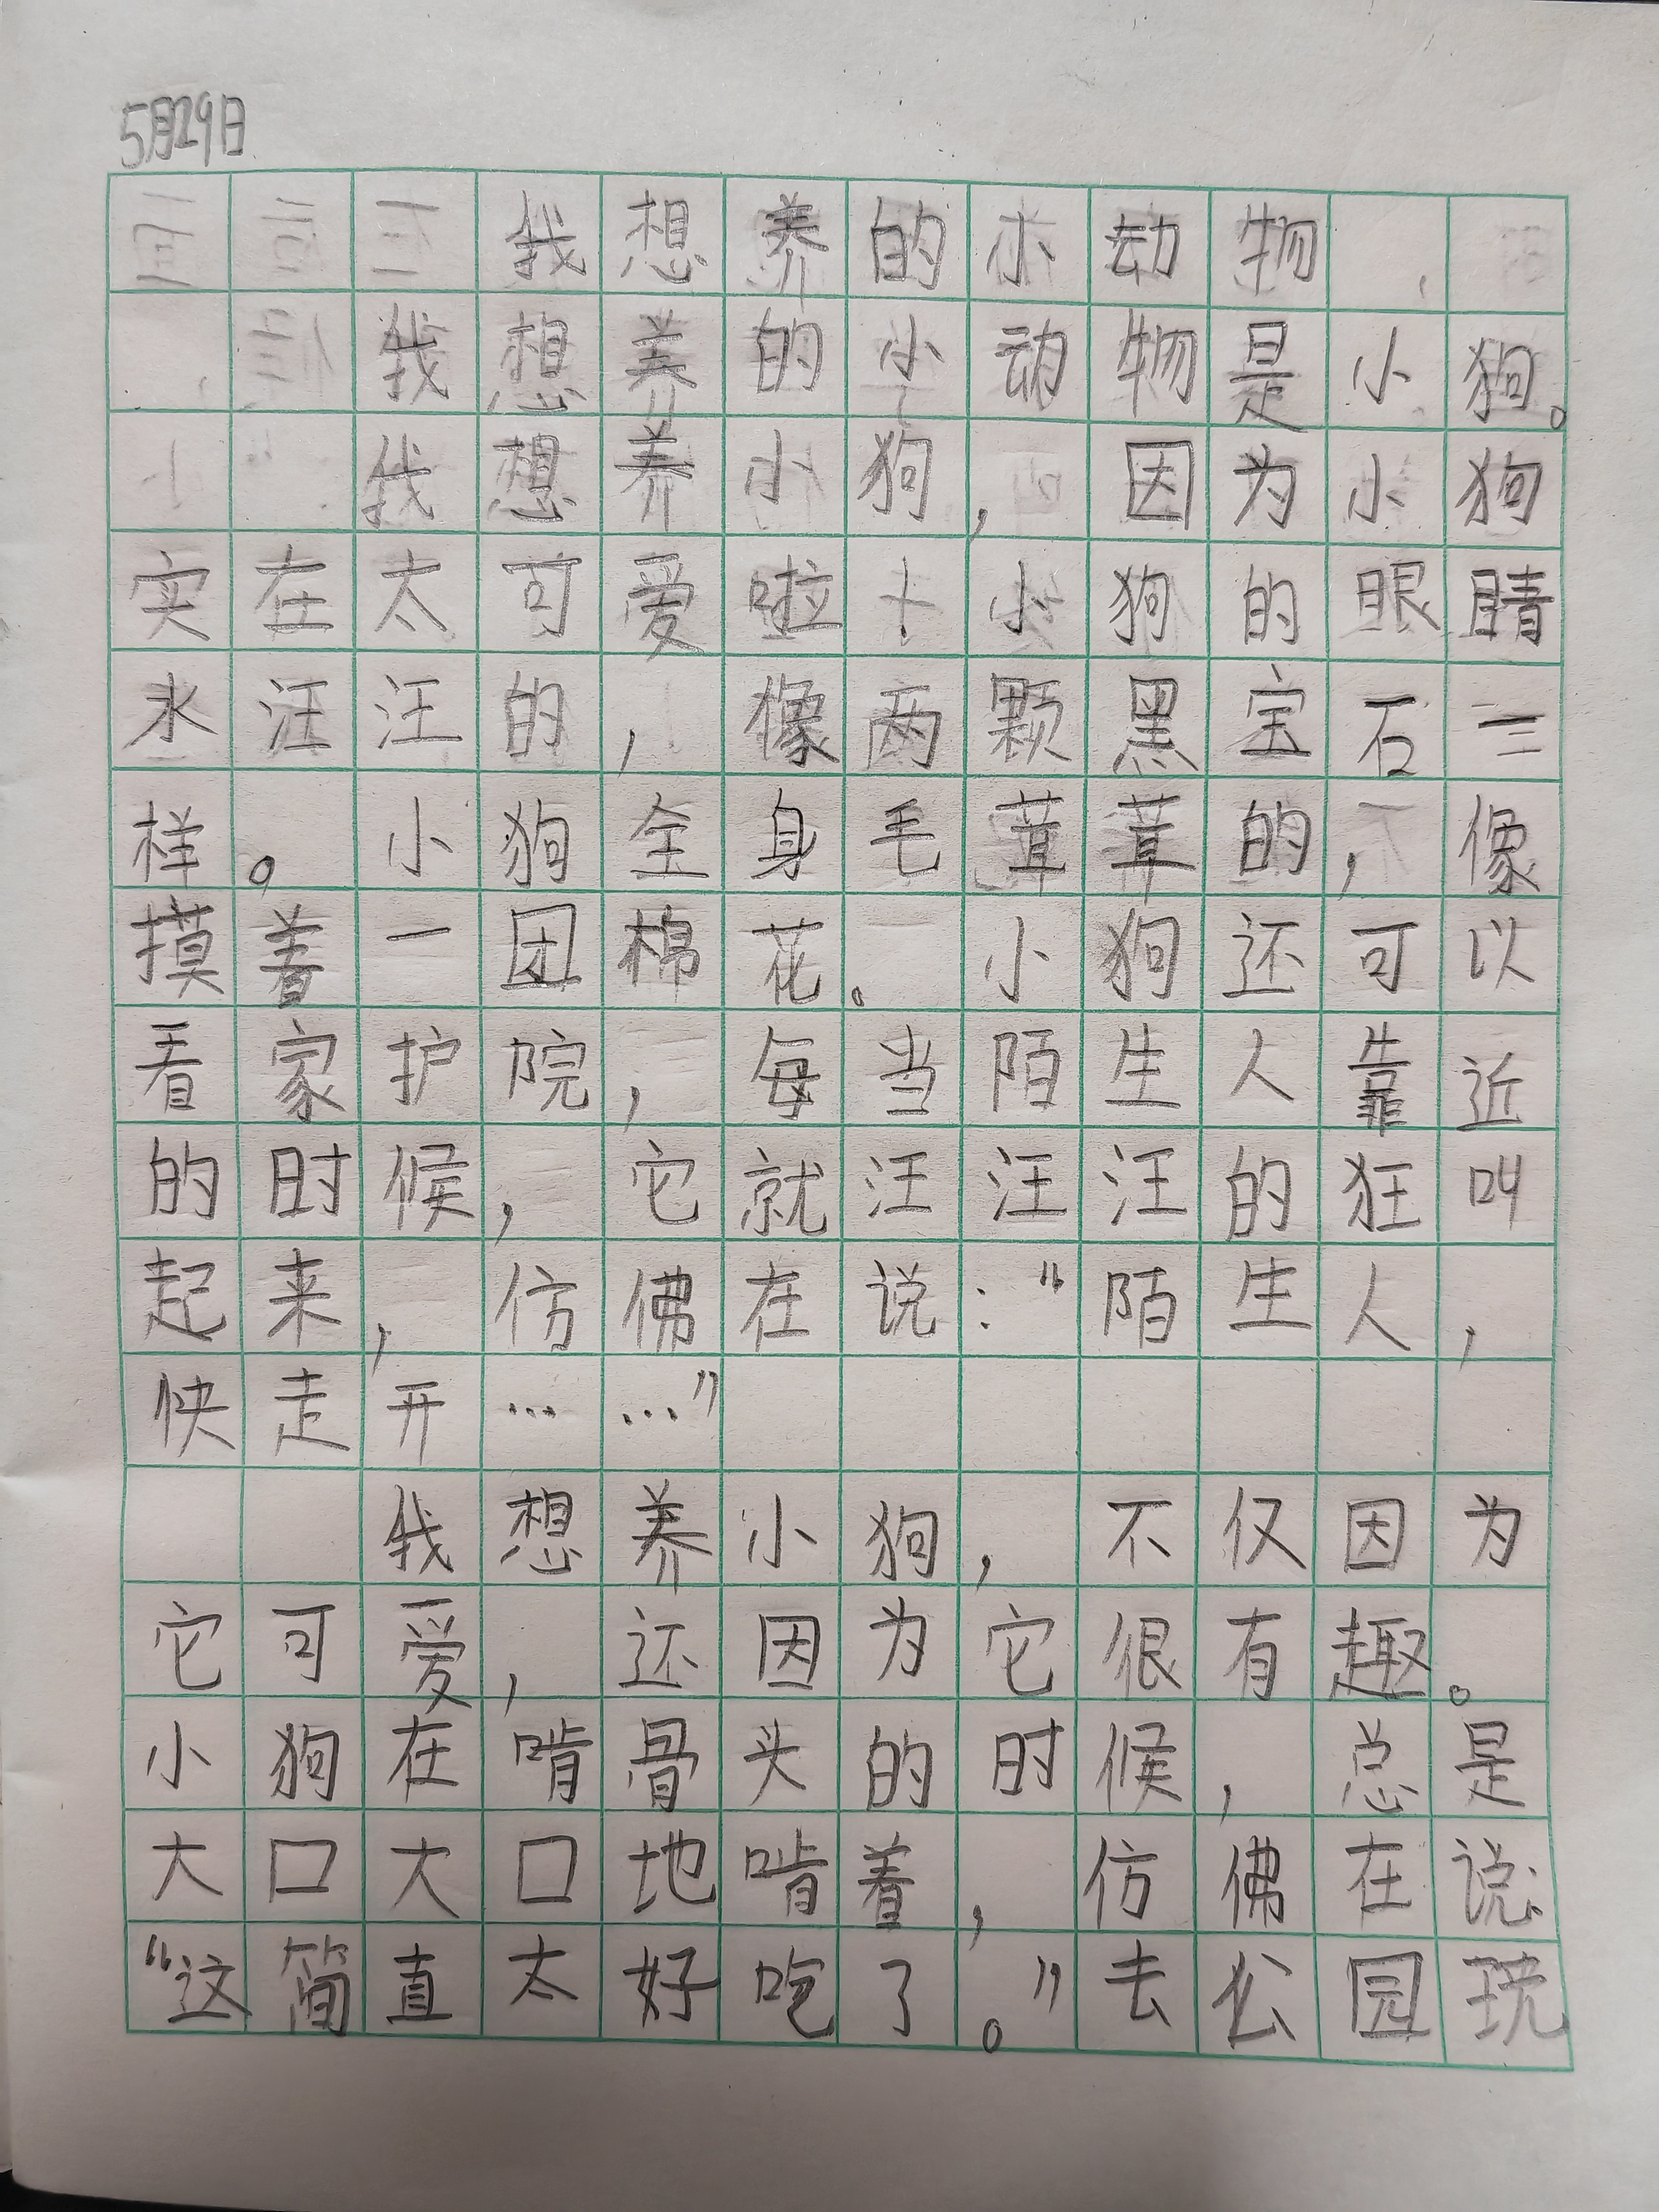 5月29日
我想养的小动物
我想养的小动物是小狗。
我想养小狗，因为小狗
实在太可爱啦！小狗的眼睛
水汪汪的，像两颗黑宝石一
样。小狗全身毛茸茸的，像
摸着一团棉花。小狗还可以
看家护院，每当陌生人靠近
的时候，它就汪汪汪的狂叫
起来，仿佛在说：“陌生人，
快走开……”
我想养小狗，不仅因为
它可爱，还因为它很有趣。
小狗在啃骨头的时候，总是
大口大口地啃着，仿佛在说：
“这简直太好吃了。”去公园玩